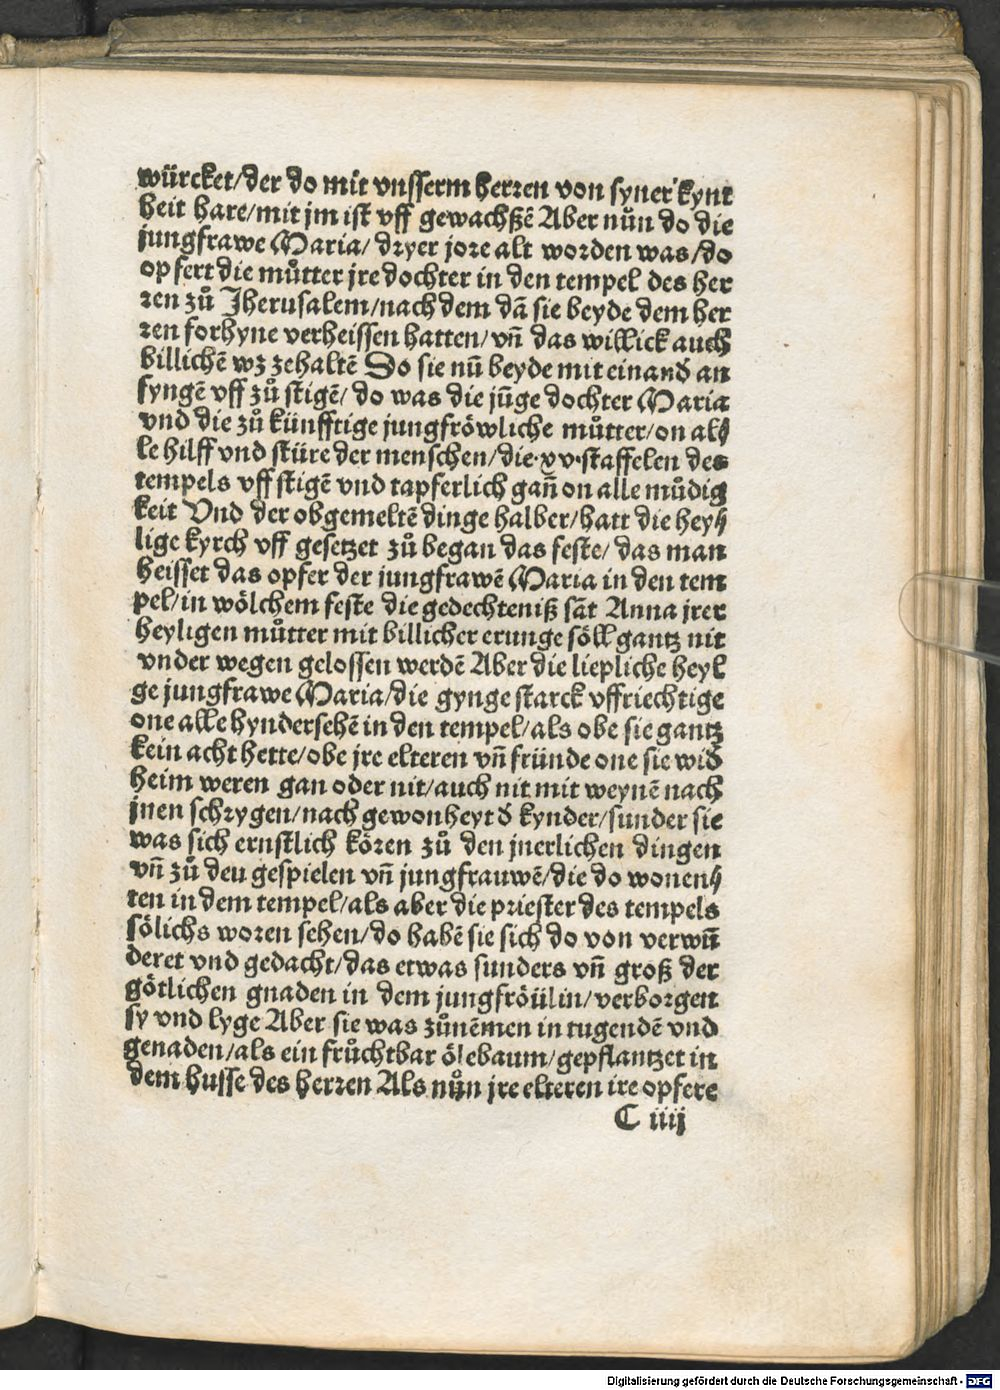 würcket/der do mit vnsserm herren von syner kynt
heit hare/mit jm ist vff gewachßē Aber nůn do die
jungfrawe Maria/ dryer jore alt worden was/do
opfert die můtter jre dochter in den tempel des her
ren zů Jherusalem/nach dem dā sie beyde dem her
ren forhyne verheissen hatten/vn̄ das willick auch
billichē wz zehaltē Do sie nū beyde mit einand̕ an
fyngē vff zů stigē/ do was die jūge dochter Maria
vnd die zů künfftige jungfröwliche můtter/on al⸗
le hilff vnd stüre der menschen/die·xv·staffelen des
tempels vff stigē vnd tapferlich gan̄ on alle můdig
keit Vnd der obgemeltē dinge halber/hatt die hey⸗
lige kyrch vff gesetzet zů began das feste/ das man
heisset das opfer der jungfrawē Maria in den tem
pel/in wölchem feste die gedechteniß sāt Anna jrer
heyligen můtter mit billicher erunge söll gantz nit
vnder wegen gelossen werdē Aber die liepliche heyl
ge jungfrawe Maria/die gynge starck vffriechtige
one alle hyndersehē in den tempel/als obe sie gantz
kein acht hette/obe jre elteren vn̄ fründe one sie wid̕
heim weren gan oder nit/auch nit mit weynē nach
jnen schrygen/nach gewonheyt d̕ kynder/sunder sie
was sich ernstlich kören zů den jnerlichen dingen
vn̄ zů deu gespielen vn̄ jungfrauwē/die do wonen⸗
ten in dem tempel/als aber die priester des tempels
sölichs woren sehen/do habē sie sich do von verwū
deret vnd gedacht/das etwas sunders vn̄ groß der
götlichen gnaden in dem jungfröülin/verborgen
sy vnd lyge Aber sie was zůnēmen in tugendē vnd
genaden/als ein frůchtbar ölebaum/gepflantzet in
dem husse des herren Als nůn jre elteren ire opfere
C iiij
Digitalisierung gefördert durch die Deutsche Forschungsgemeinschaft - DFG